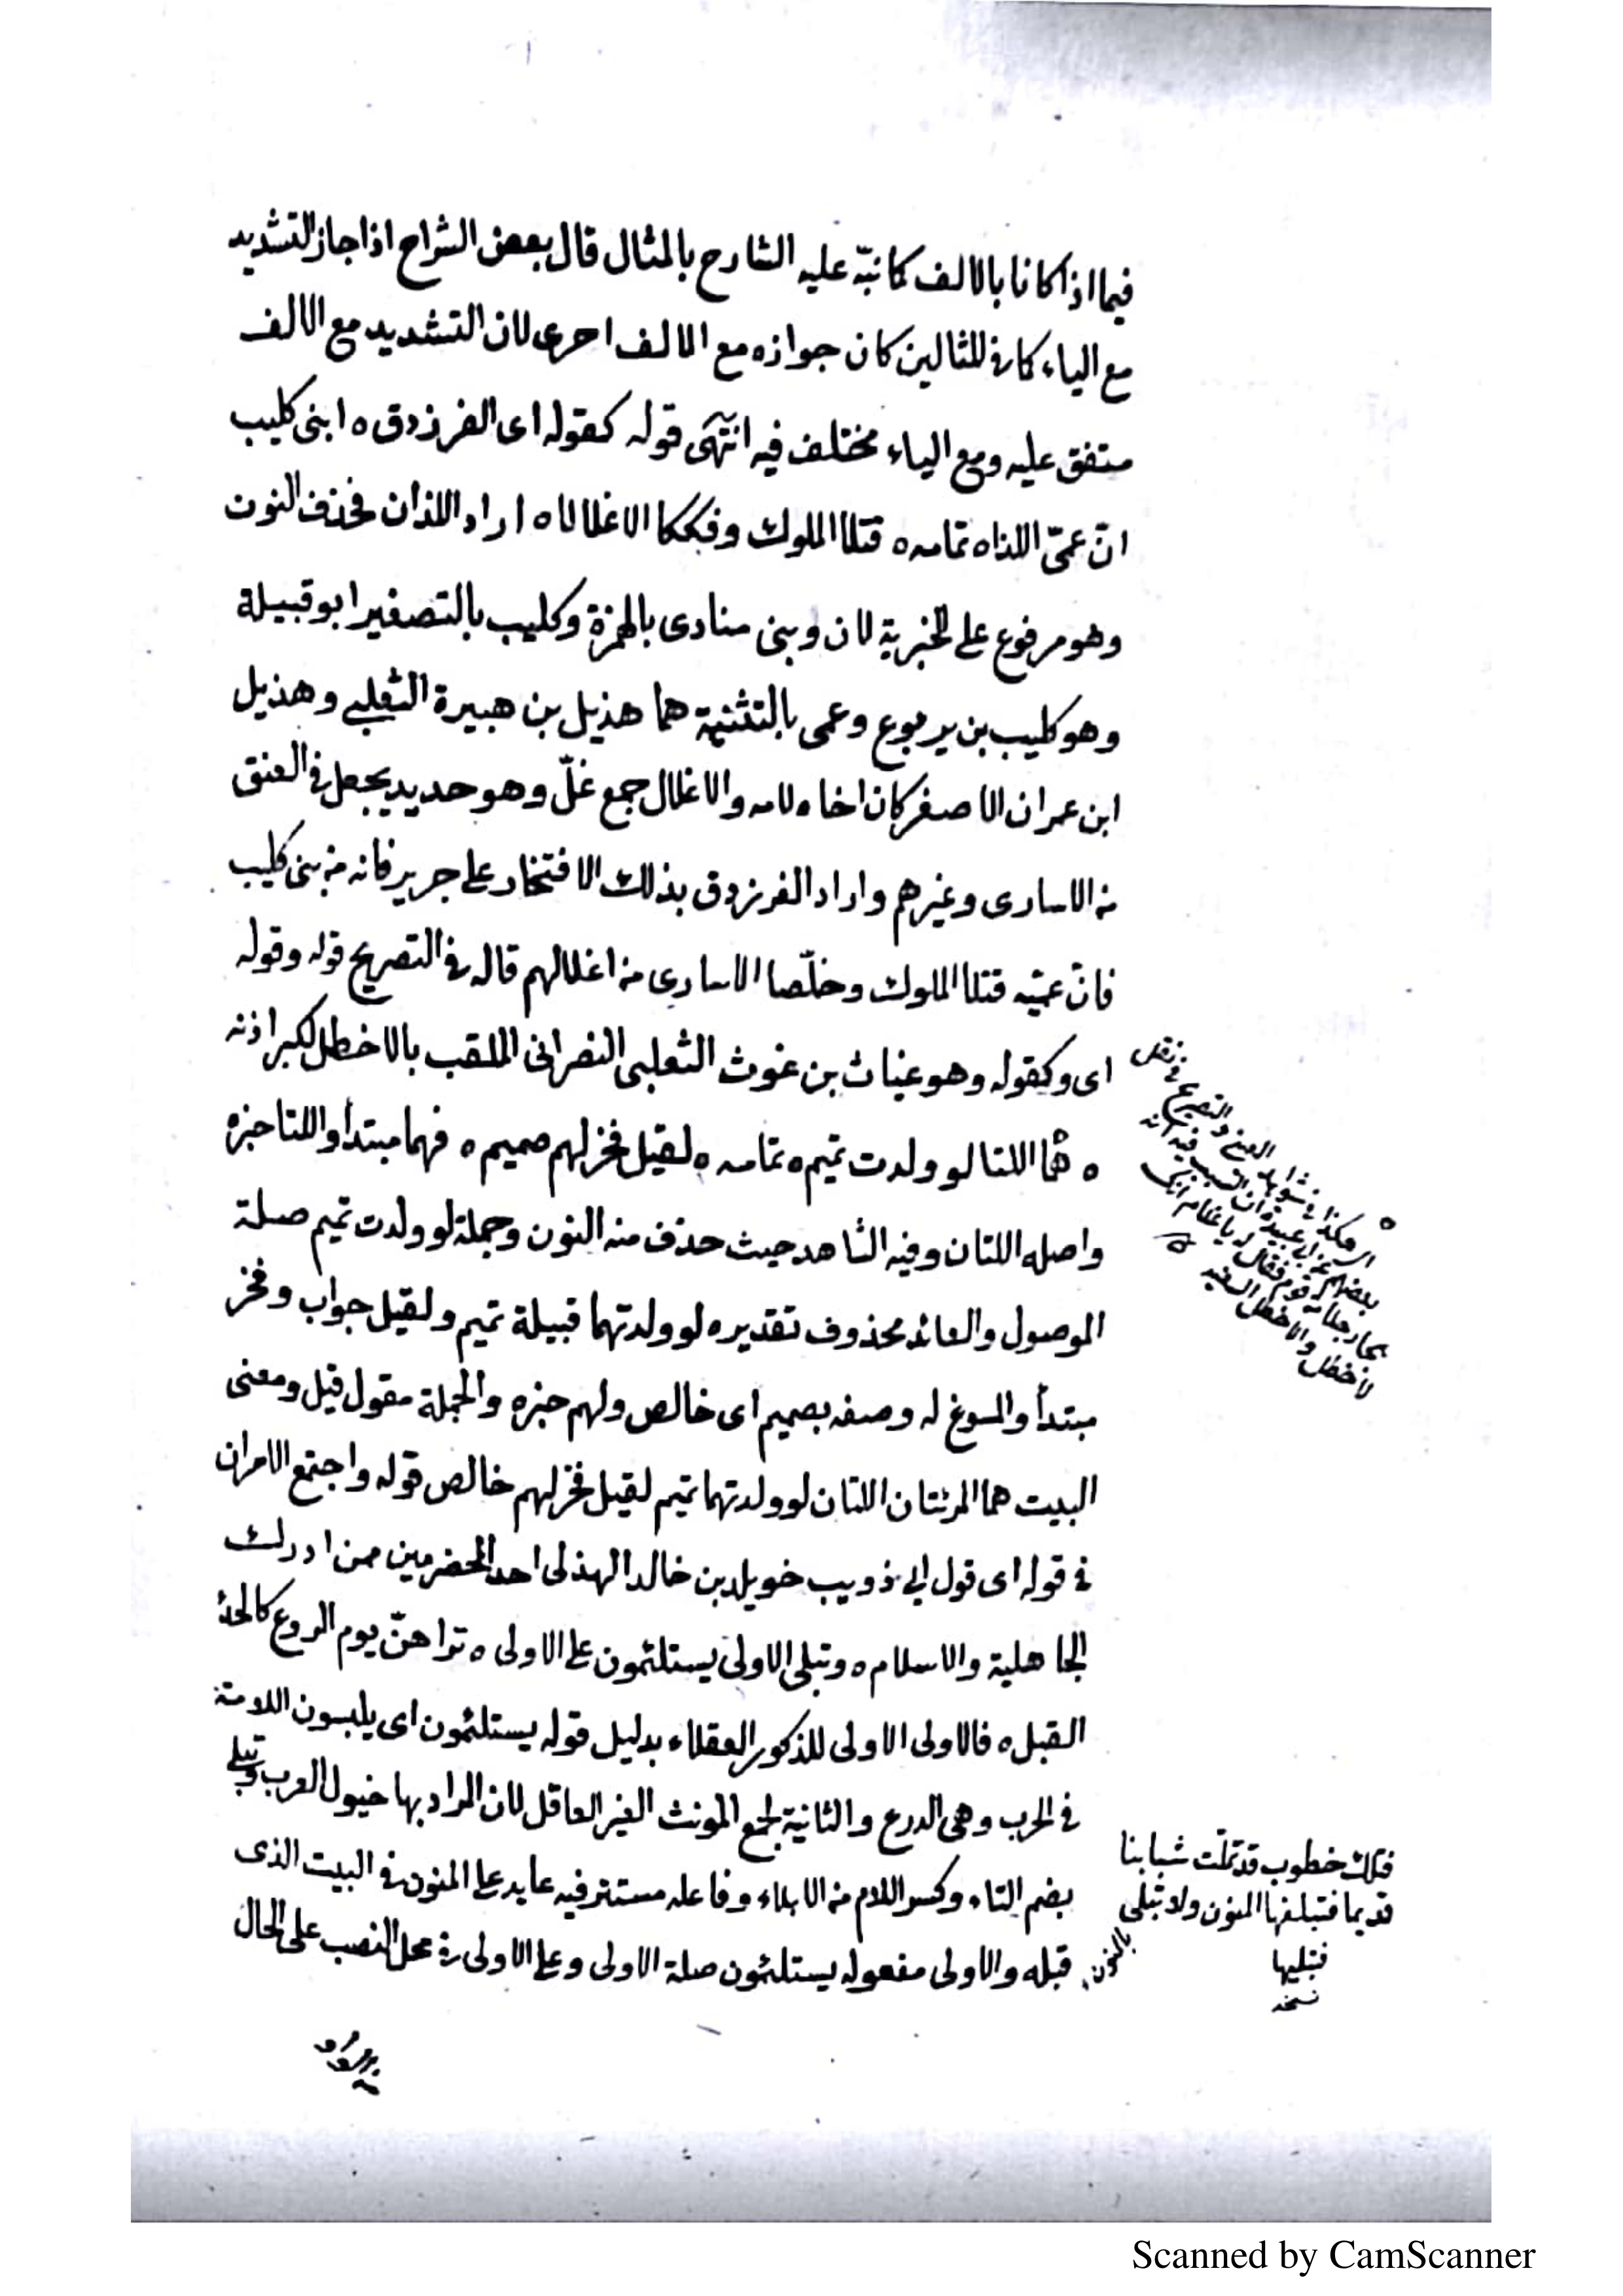 فيما اذا كانا بالالف كما نبّه عليه الشارح بالمثال قال بعض الشراح اذا جاز التشديد
مع الياء كما في المثالين كان جوازه مع الالف احرى لان التشديد مع الالف
متفق عليه ومع الياء مختلف فيه انتهى قوله كقوله اى الفرزدق ه ابنى كليب
انّ عمىّ اللذا ه تمامه ه قتلا الملوك وفككا الاغلالا ه اراد اللذان فحذف النون
وهو مرفوع على الخبرية لان وبنى منادى بالهمزة وكليب بالتصغير ابو قبيلة
وهو كليب بن يربوع وعمى بالتثنية هما هذيل بن هبيرة الثعلبى وهذيل
ابن عمران الاصغر كان اخاه لامه والاغلال جمع غلّ وهو حديد يجعل في العنق
من الاسارى وغيرهم واراد الفرزدق بذلك الافتخار على جرير فانه من بنى كليب
فانّ عميّه قتلا الملوك وخلّصا الاسارى من اغلالهم قاله في التصريح قوله وقوله
اى وكقوله وهو غياث بن غوث الثعلبى النصرانى الملقب بالاخطل لكبر اذنه
ه هما اللتا لو ولدت تميم ه تمامه ه لقيل فخر لهم صميم ه فهما مبتدأ واللتا خبره
واصله اللتان وفيه الشاهد حيث حذف منه النون وجملة لو ولدت تميم صلة
الموصول والعائد محذوف تقديره لو ولدتهما قبيلة تميم ولقيل جواب وفخر
مبتدأ والمسوغ له وصفه بصميم اى خالص ولهم خبره والجملة مقول قيل ومعنى
البيت هما المرئتان اللتان لو ولدتهما تميم لقيل فخر لهم خالص قوله واجتمع الامران
في قوله اى قول ابي ذويب خويلد بن خالد الهذلى احد المخضرمين ممن ادرك
الجاهلية والاسلام ه وتبلى الاولى يستلئمون على الاولى ه تراهنّ يوم الروع كالحدإ
القبل ه فالاولى الاولى للذكور العقلاء بدليل قوله يستلئمون اى يلبسون اللامة
في الحرب وهى الدرع والثانية لجمع المونث الغير العاقل لان المراد بها خيول العرب وتبلى
بضم التاء وكسر اللام من الابلاء وفاعله مستتر فيه عايد على المنون في البيت الذى
قبله والاولى مفعوله يستلئمون صلة الاولى وعلى الاولى في محل النصب على الحال
فتلك خطوب قد تملّت شبابنا
قديما فتبلينا المنون ولا تبلى
فتبليها
نسخه
Scanned by CamScanner